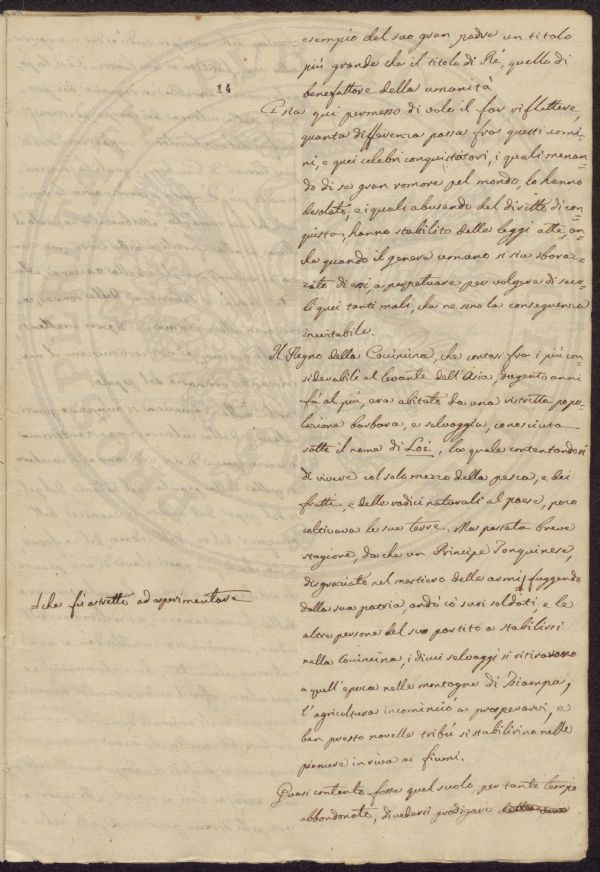 14
esempio del suo gran padre un titolo
più grande che il titolo di Ré, quello di
benefattore della umanità
E sia qui permesso di volo il far riflettere,
quanta differenza passa fra questi uomi=
ni, e quei celebri conquistatori, i quali menan=
do di se gran romore pel mondo, lo hanno
desolato, e i quali abusando del diritto di con=
quista, hanno stabilito delle leggi atte, an=
che quando il genere umano si sia sbaraz=
zato di essi a perpetuare per volgere di seco=
li quei tanti mali, che ne sono la conseguenza
inevitabile.
Il Regno della Cocincina, che contasi fra i più con=
siderabili al levante dell'Asia, dugento anni
fà al più, era abitato da una ristretta popo=
lazione barbara, e selvaggia, conosciuta
sotto il nome di Loi, la quale contentandosi
di vivere col solo mezzo della pesca, e dei
frutti, e delle radici naturali al paese, poco
coltivava le sue terre. Ma passata breve
stagione, da che un Principe Tonquinese,
disgraziato nel mestiero delle armi fuggendo
che fù astretto ad asperimentare
dalla sua patria, andò co' suoi soldati, e le
altre persone del suo partito a stabilirsi
nella Cocincina, i divei selvaggi si ritirarono
a quell'epoca nelle montagne di Tsiampa;
l'agricoltura incominciò a prosperarvi, e
ben presto novelle tribù si stabilirono nelle
pianure in riva ai fiumi.
Quasi contento fosse quel suolo, per tanto tempo
abbondonato, di vedersi prodigare